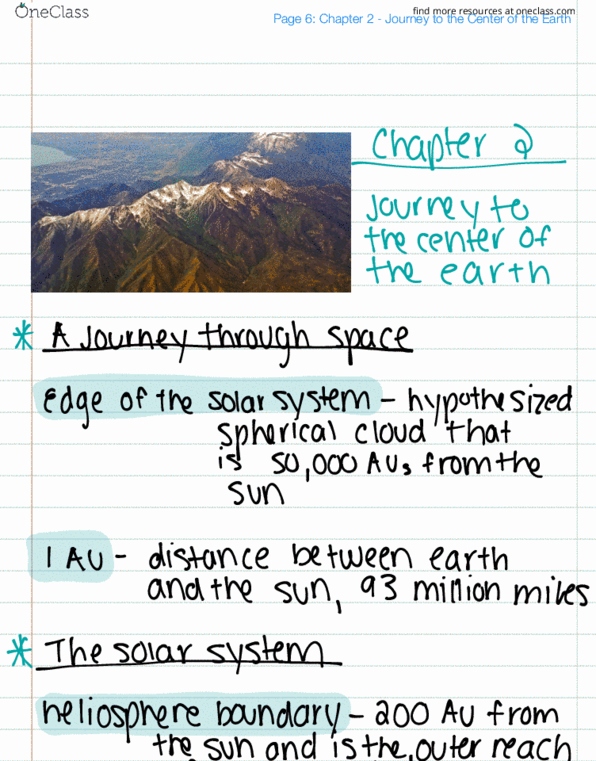 OneClass
find more resources at oneclass.com
Page 6: Chapter 2 - Journey to the Center of the Earth
Chapter 2
Journey to
the center of
the earth
* A Journey through space
Edge of the solar system - hypothesized
spherical cloud that
is 50,000 AUs from the
sun
1 AU - distance between earth
and the sun, 93 million miles
* The solar system
heliosphere boundary - 200 AU from
the sun and is the outer reach